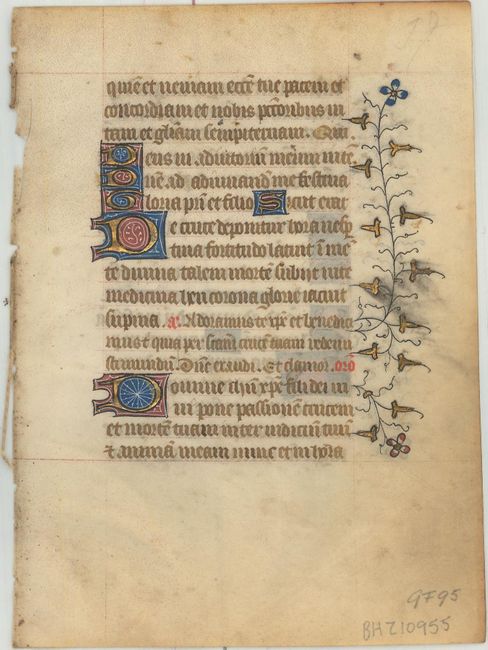 quiē et veniam ecc̄e tue pacem et
concordiam et nobis pc̄coribus vi
tam et gl̄iam sempiternam. Qui.
Deus in adiutoriū meum intē
ne. ad adiuuand me festina
Gloria pr̄i et filio Sicut erat
De cruce deponitur hora vesp
tina fortitudo latuit ī mē
te diuina talem mortē subijt vite
medicina heu corona glorie iacuit
supina. Adoramus te xp̄e et benedici
mus t quia per sc̄am crucē tuam redem
sti mundū. Dn̄e exaudi. Et clamor. orō
Domine ihū xp̄e fili dei vi
ui pone passionē crucem
et mortē tuam inter iudiciū tuū
& animā meam nunc et in hora
GF95
BHZ10955